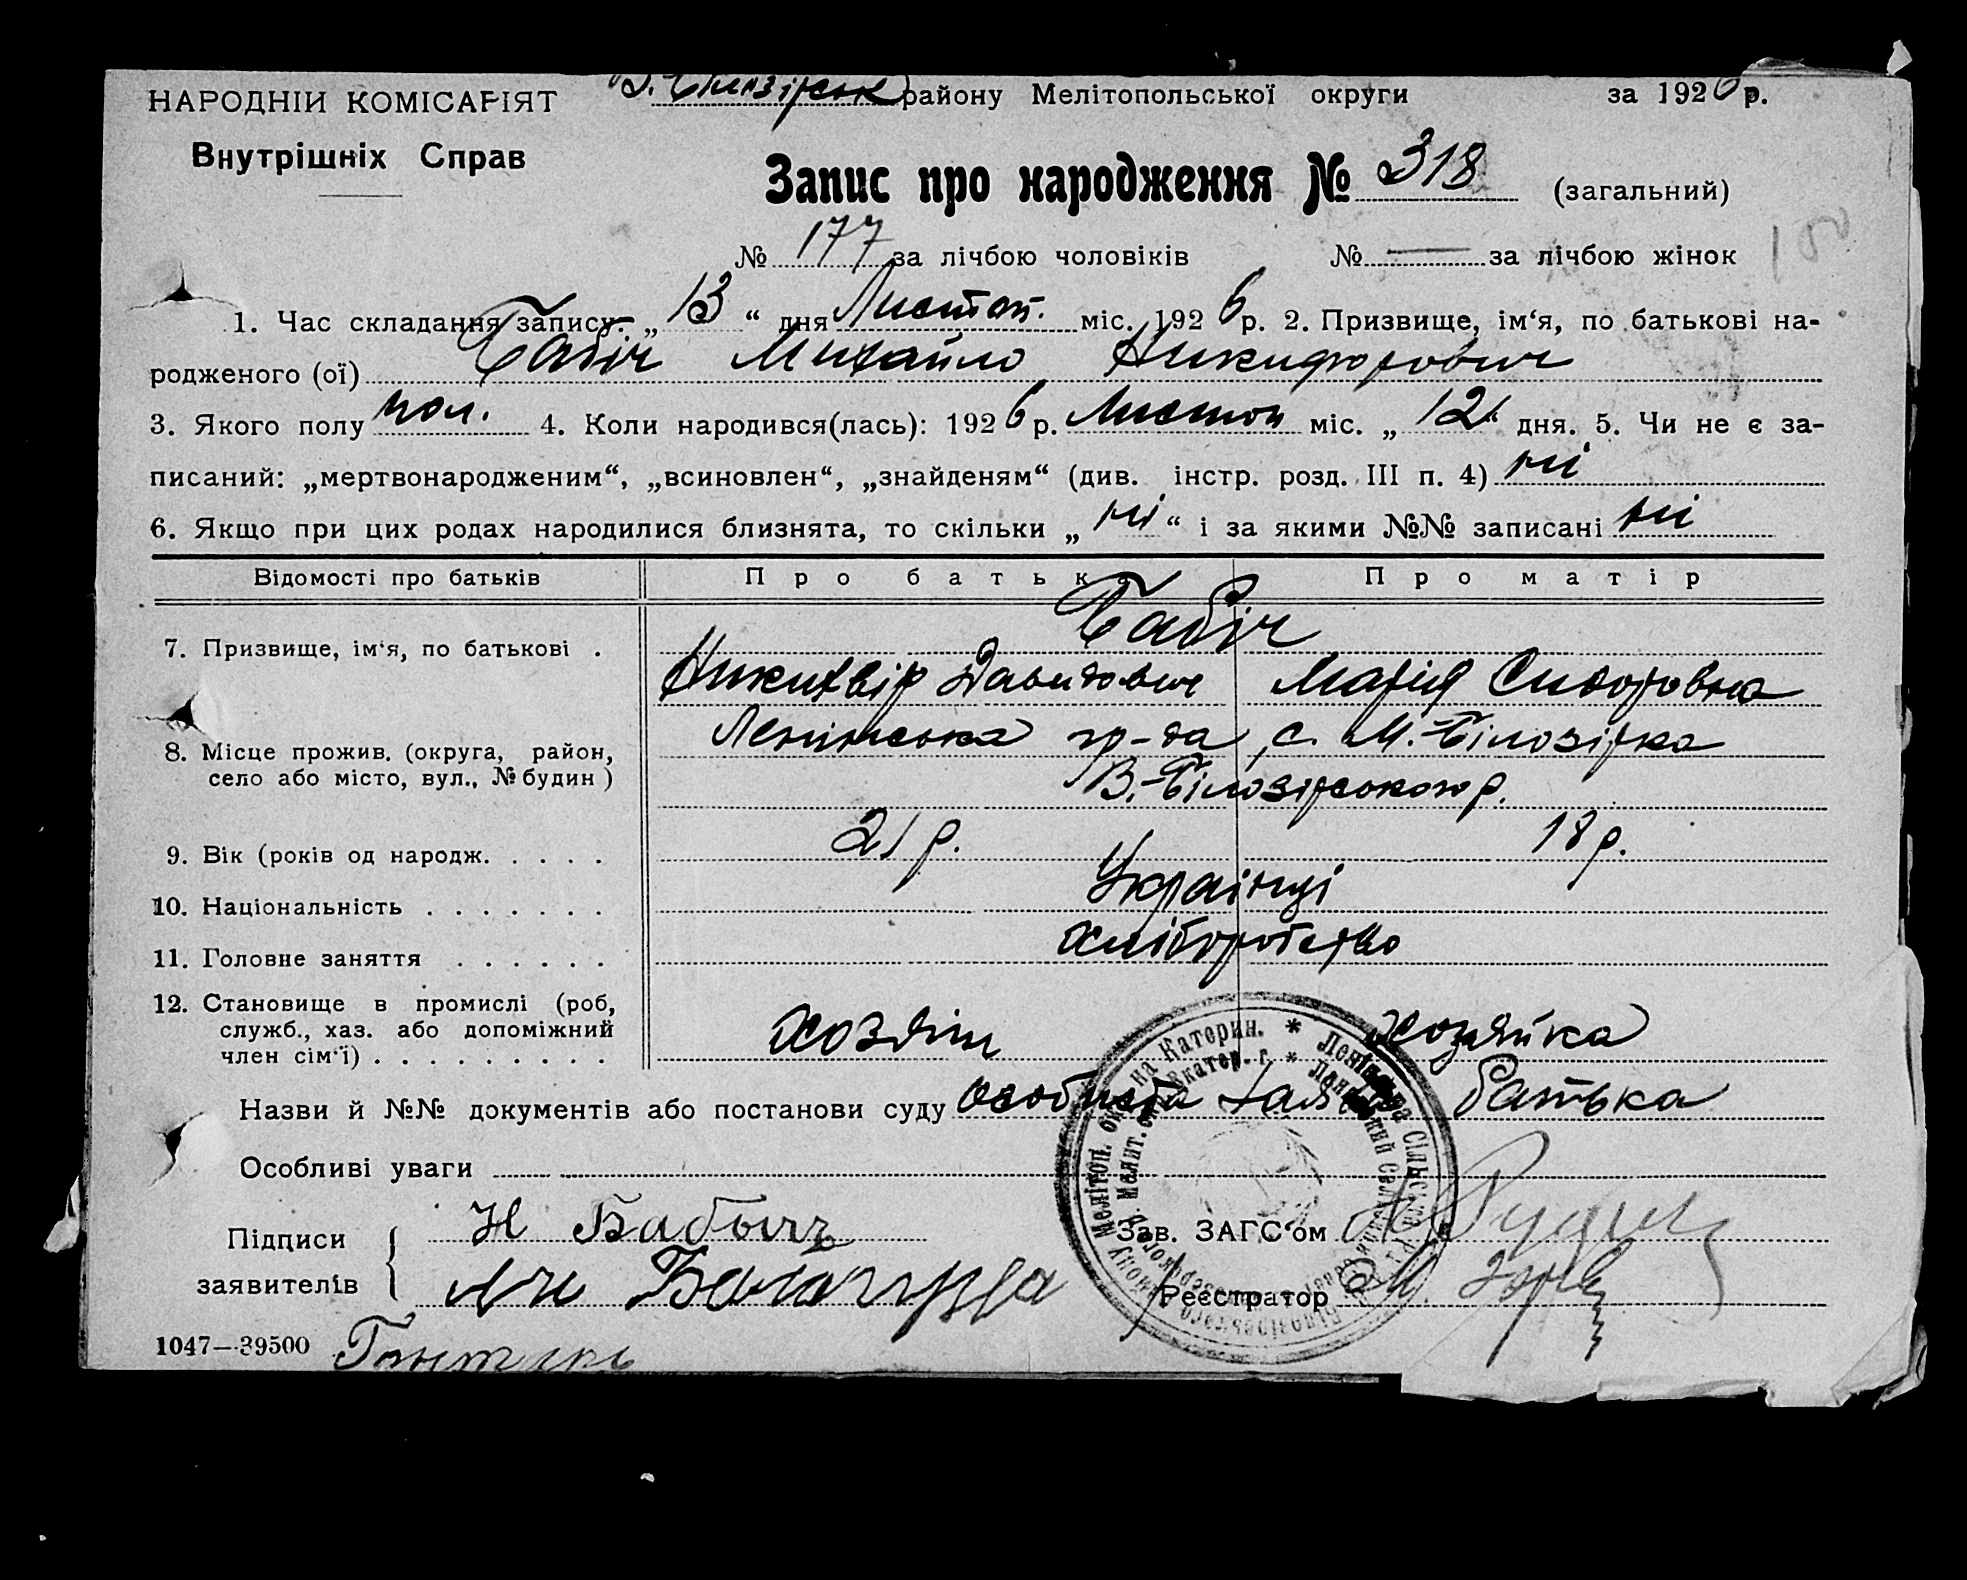 НАРОДНІЙ КОМІСАРІЯТ
Внутрішніх Справ
В. Білозірськ району Мелітопольської округи за 1926 р.
Запис про народження № 318 (загальний)
№ 177 за лічбою чоловіків № — за лічбою жінок
1. Час складання запису: „ 13 “ дня Листоп. міс. 1926 р. 2. Призвище, ім‘я, по батькові на-
родженого (ої) Бабіч Михайло Никифорович
3. Якого полу чол. 4. Коли народився(лась): 1926 р. Листоп міс. „ 12 “ дня. 5. Чи не є за-
писаний: „мертвонародженим“, „всиновлен“, „знайденям“ (див. інстр. розд. III п. 4) ні
6. Якщо при цих родах народилися близнята, то скільки „ ні “ і за якими №№ записані ні
Відомості про батьків Про батька Про матір
Бабіч
7. Призвище, ім‘я, по батькові . Никихвір Давидович Марія Сидоровна
8. Місце прожив. (округа, район, Ленінська гр-да, с. М.-Білозірка
село або місто, вул., № будин) В.-Білозірського р.
9. Вік (років од народж. . . . . 21 р. 18 р.
10. Національність . . . . . . . Українці
11. Головне заняття . . . . . . Хліборобство
12. Становище в промислі (роб,
служб., хаз. або допоміжний Хозяін Хозяйка
член сім‘ї) . . . . . . . . .
Назви й №№ документів або постанови суду особиста заява батька
Особливі уваги
Підписи Н Бабычъ Зав. ЗАГС‘ом
заявителів Реєстратор
1047—39500